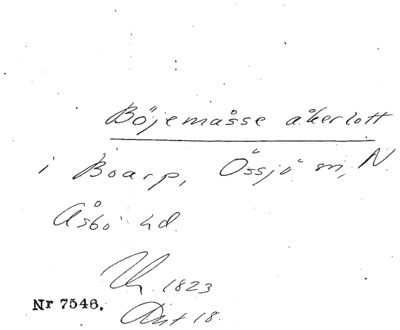 Böjemåsse åkerlott
i Boarp, Össjö sn, N.
Åsbo hd.
1823
Nr 7546.
18.